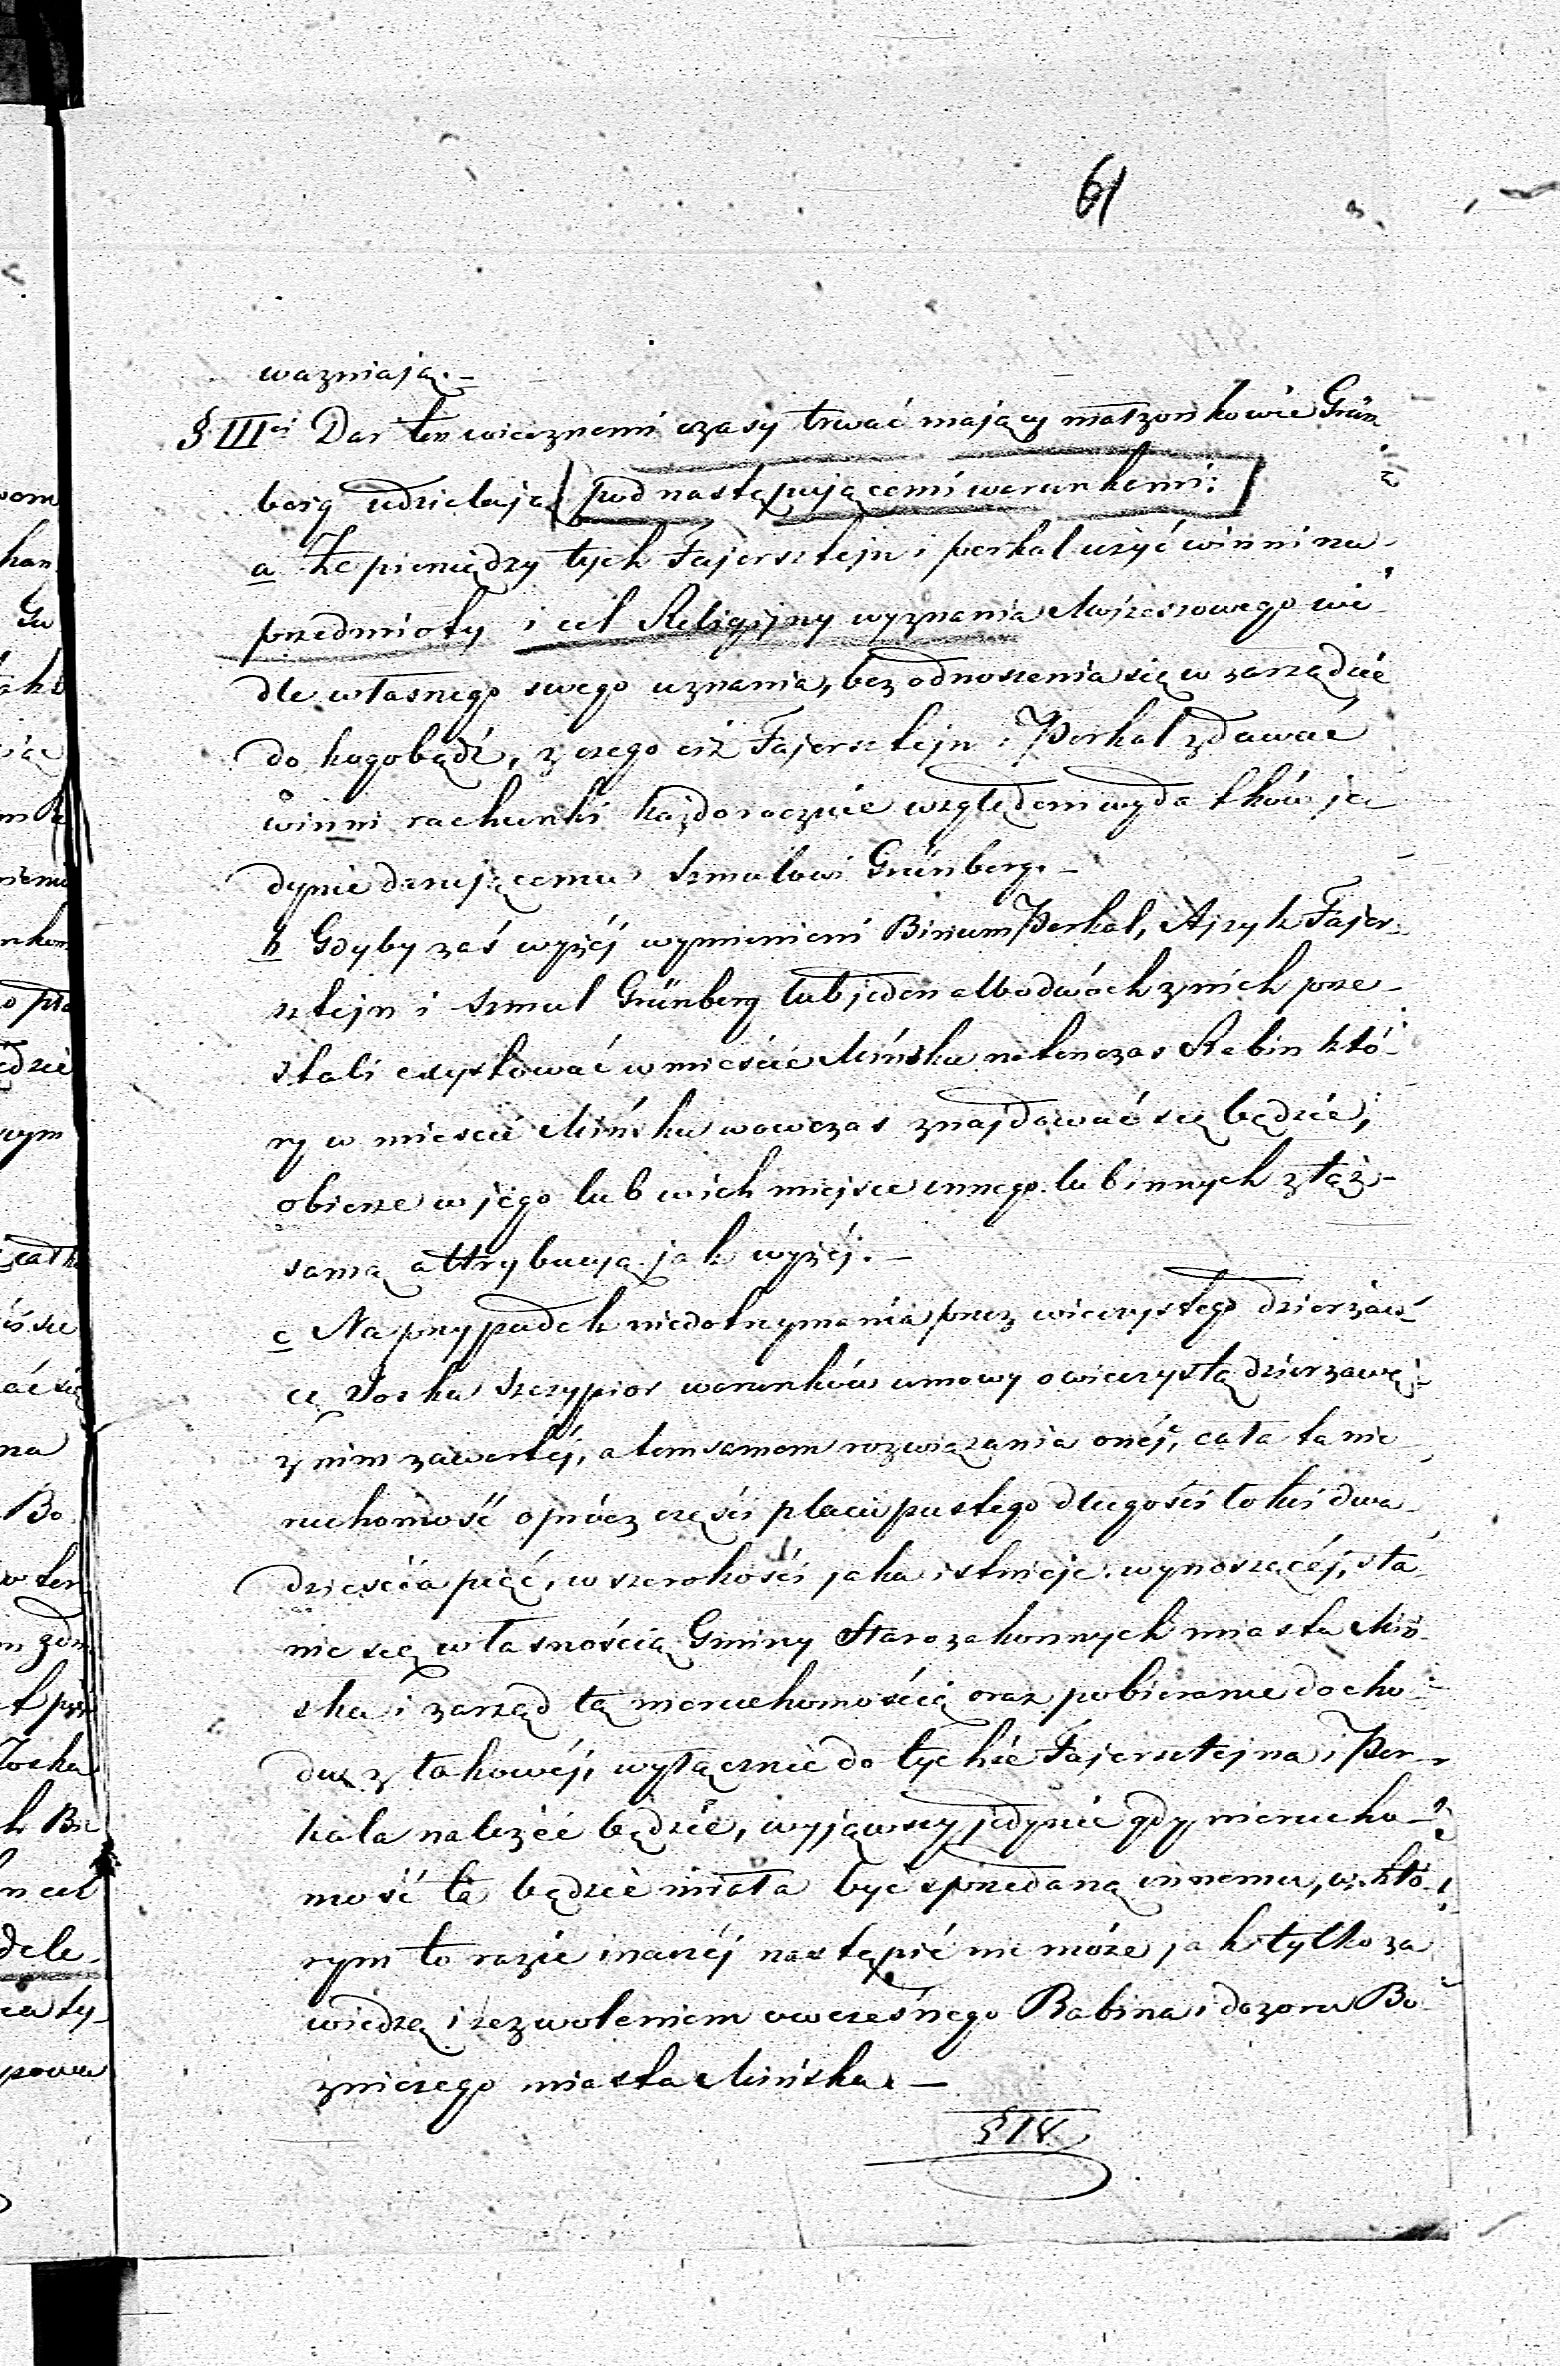 61
ważniają.-
§ IIIci Dar ten wiecznemi czasy trwać mający małżonkowie Grün
berg udzielają pod następującemi warunkami:
a Że pieniędzy tych Fajersztejn i perkal użyć winni na
przedmioty i cel Religijny wyznania Mojżeszowego we-
dle własnego swego uznania, bez odnoszenia się w zarządzie
do kogobądź, z czego ciż Fajersztejn i Perkal zdawać
winni rachunki każdorocznie względem wydatków je
dynie darującemu Szmulowi Grünberg.-
b Gdyby zaś wyżéj wymienieni Binum Perkal, Ajzyk Fajer-
sztejn i Szmul Grünberg lub jeden albo dwóch z nich prze-
stali exystować w mieście Mińsku natenczas Rabin któ-
ry w mieście Mińsku wówczas znajdować się będzie,
obierze w jego lub w ich miejsce innego lub innych z tąż-
samą attrybucyą jak wyżéj.-
c Na przypadek niedotrzymania przez wieczystego dzierżaw-
cę Joska Szczypior warunków umowy o wieczystą dzierzawę
z nim zawartéj, a temsamem rozwiązania onéj, cała ta nie
ruchomość oprócz części placu pustego długości łokci dwa-
dzieścia pięć, w szerokości jaka istnieje wynoszącéj, sta-
nie się własnością Gminy Starozakonnych miasta Miń-
ska i zarząd tą nieruchomością oraz pobieranie docho-
du z takowéj, wyłącznie do tychże Fajersztejna i Per-
kala należéć będzie, wyjąwszy jedynie gdy nierucho-
mość ta będzie miała być sprzedaną innemu, w któ-
rym to razie inaczéj nastąpić nie może jak tylko za
wiedzą i zezwoleniem ówczesnego Rabina i dozoru Bo-
żniczego miasta Mińska.-
§ IV.